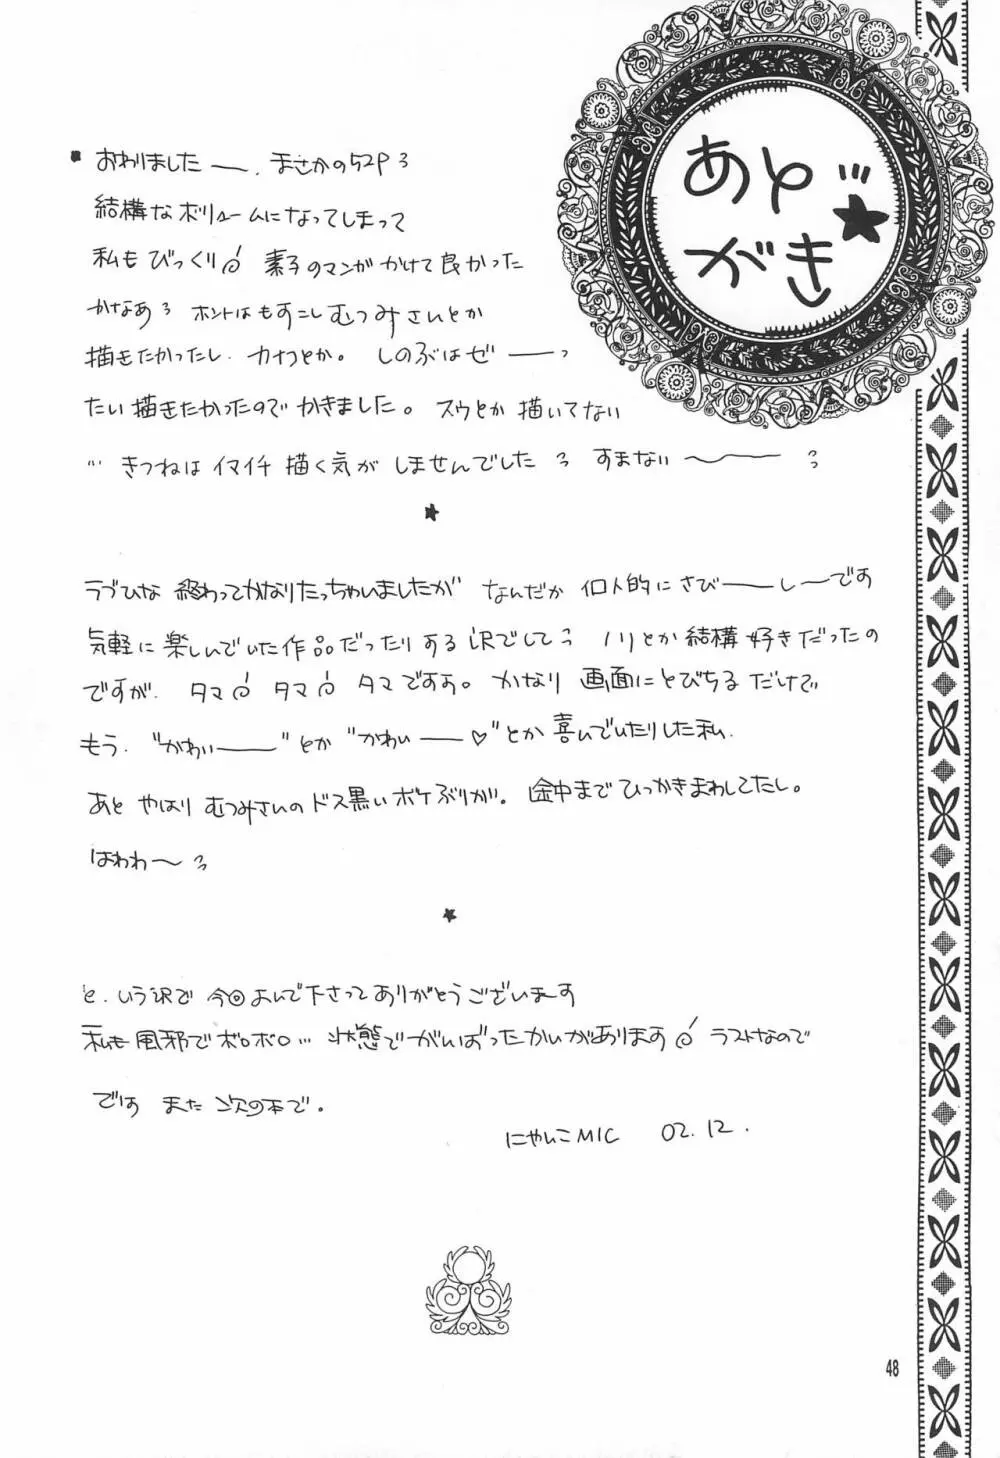 あと…
がき★
■おわりました——、まさかの52P
結構なボリュームになってしまって
私もびっくり 素子のマンガかけて良かった
かなあ ホントはもすこしむつみさんとか
描きたかったし、カナコとか。しのぶはぜ——っ
たい描きたかったのでかきました。スウとか描いてない
…きつねはイマイチ描く気がしませんでした すまない〜——
★
ラブひな終わってかなりたっちゃいましたが なんだか個人的にさび——し〜です
気軽に楽しんでいた作品だったりする訳でして ノリとか結構好きだったの
ですが、タマ タマ タマですよ。かなり画面にとびちるだけで
もう、“かわい——”とか“かわい——♡”とか喜んでいたりした私、
あと やはりむつみさんのドス黒いボケぶりが。途中までひっかきまわしてたし。
はわわ〜
★
と、いう訳で 今回よんで下さってありがとうございまーす
私も風邪でボロボロ…状態でがんばったかいがあります ラストなので
では また次の本で。
にゃんこMIC 02.12.
48